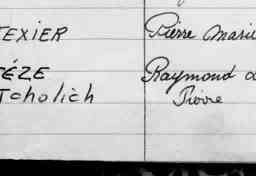 TEXIER Pierre Marie
TÉZE Raymond
Tcholich Pierre